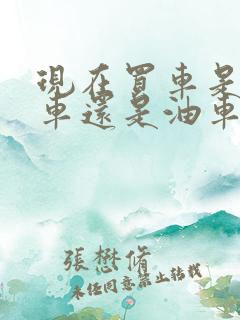 現在買車是
車還是油車
張懋脩
未经同意禁止转载